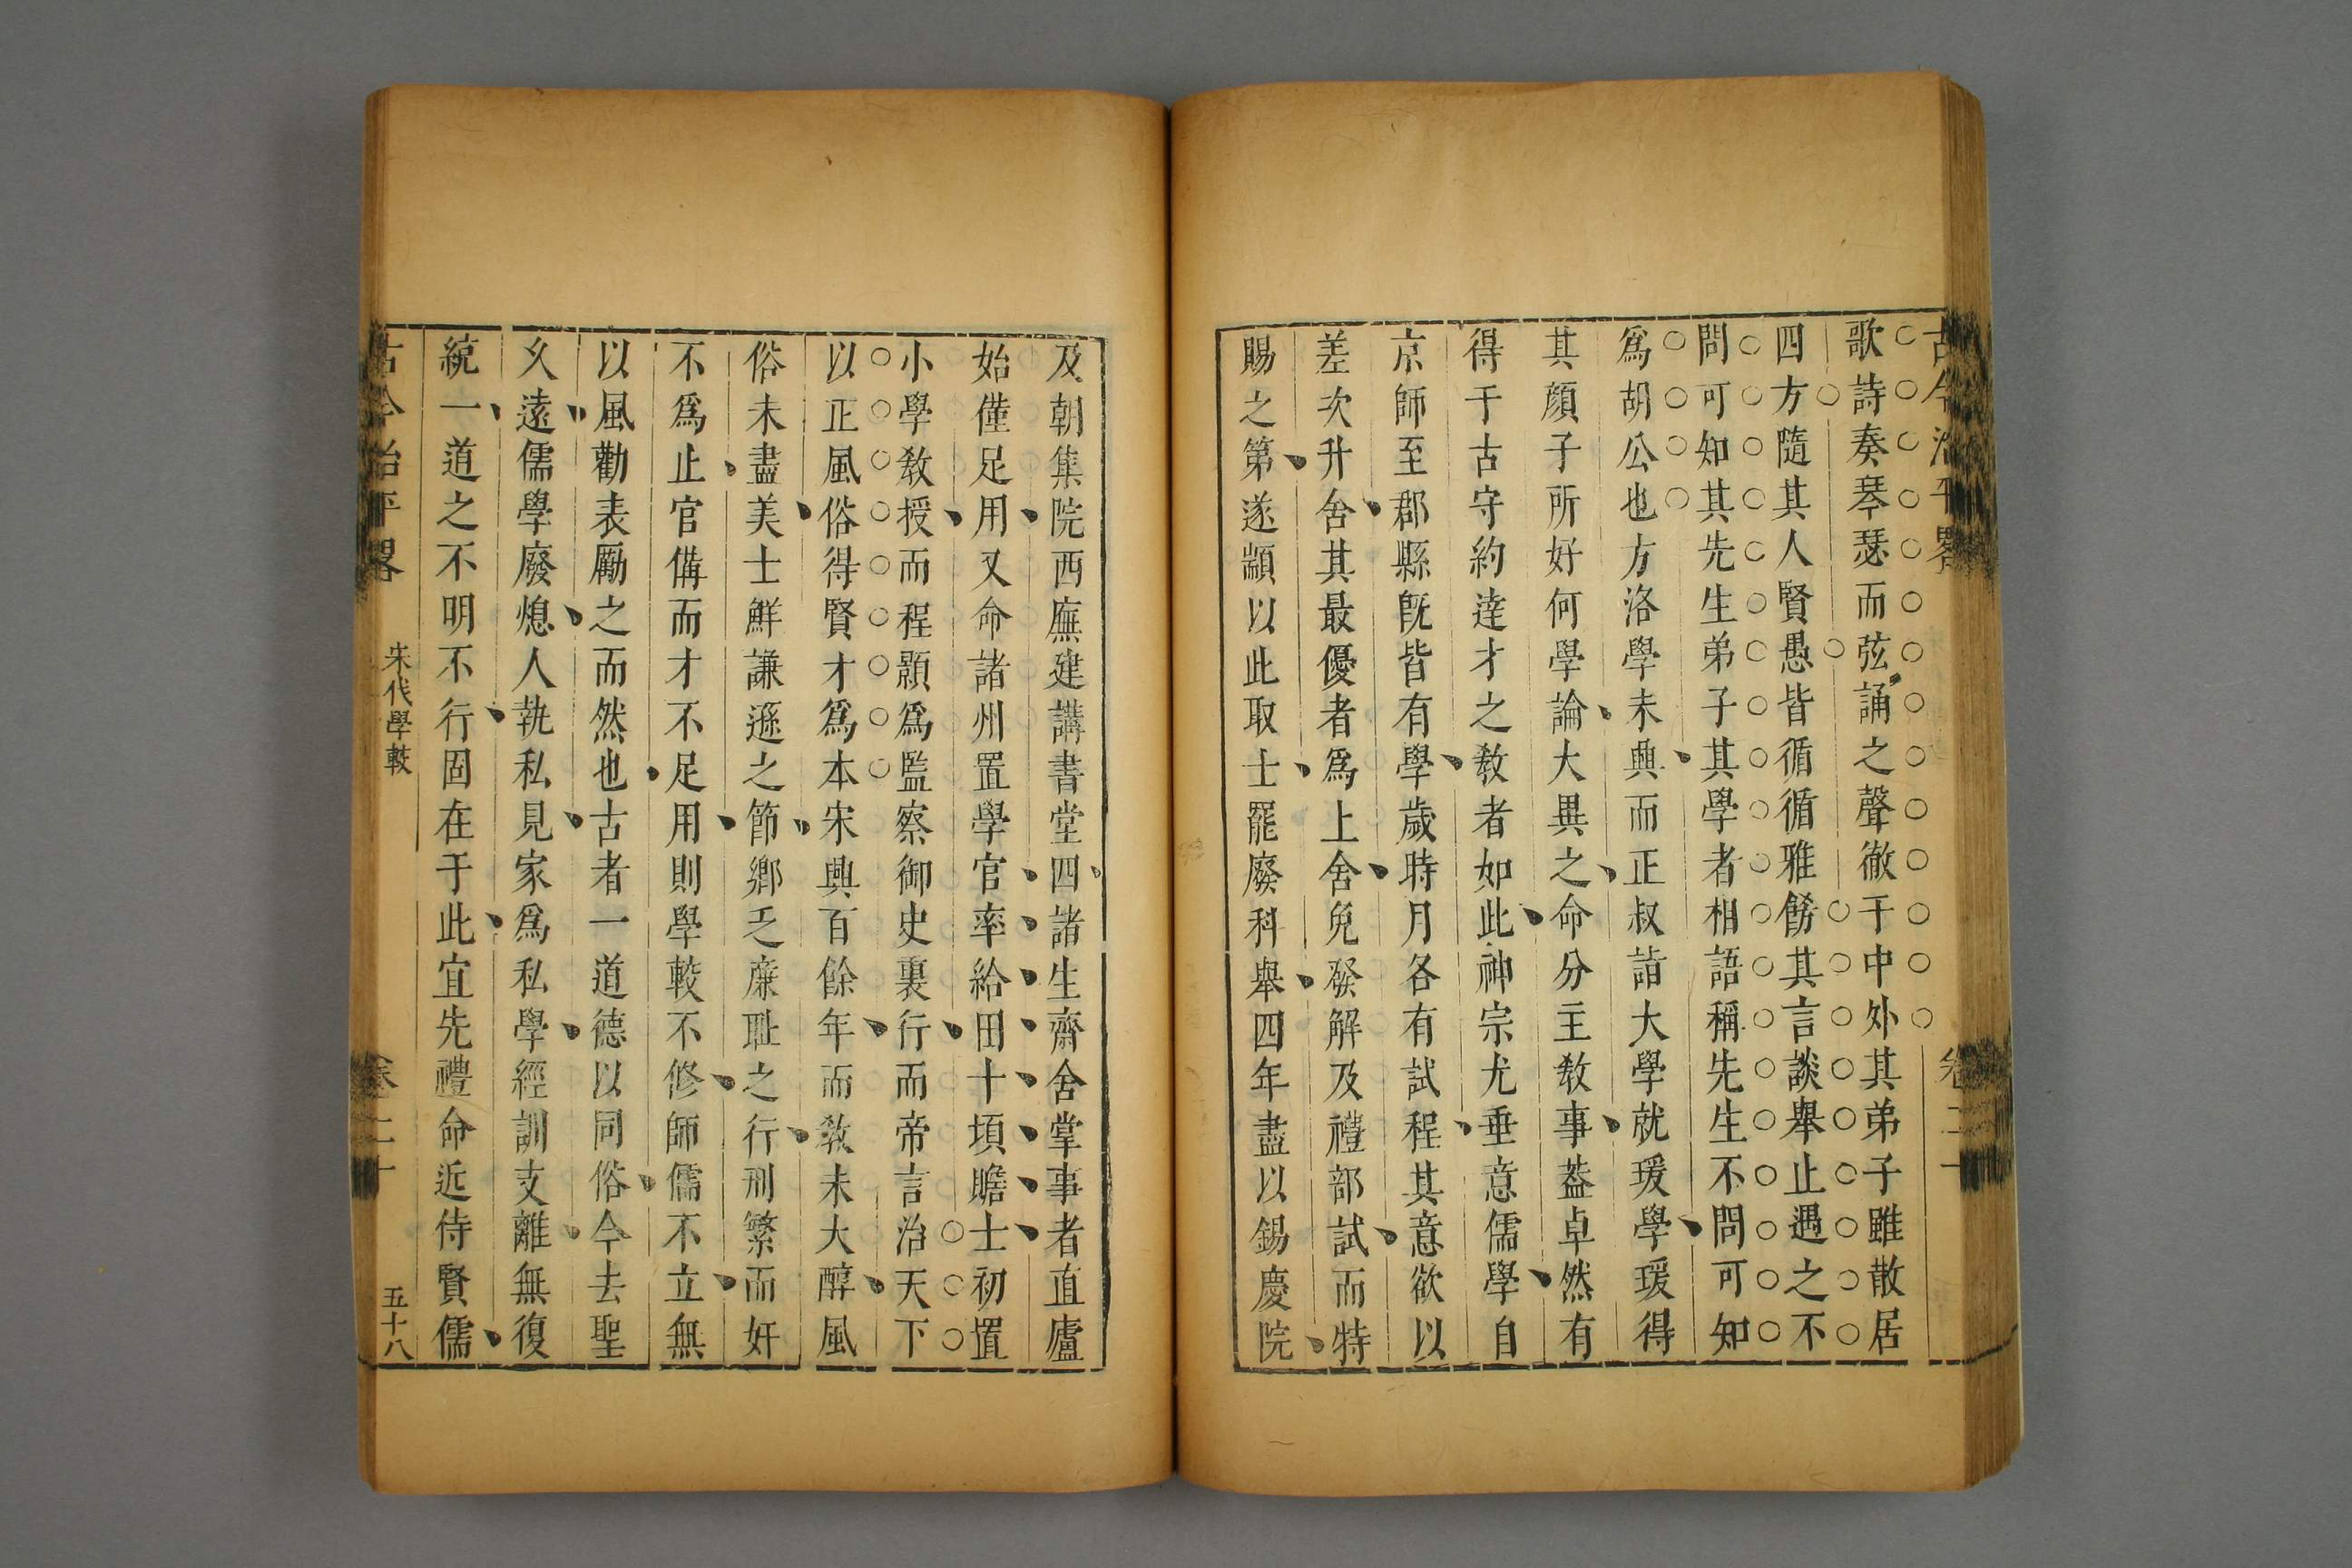 古今治平畧 卷二十
歌詩奏琴瑟而弦誦之聲徹于中外其弟子雖散居
四方隨其人賢愚皆循循雅餝其言談舉止遇之不
問可知其先生弟子其學者相語稱先生不問可知
爲胡公也方洛學未興而正叔詣大學就瑗學瑗得
其顔子所好何學論大異之命分主敎事葢卓然有
得于古守約達才之敎者如此神宗尤垂意儒學自
京師至郡縣旣皆有學歲時月各有試程其意欲以
差次升舍其最優者爲上舍免發解及禮部試而特
賜之第遂顓以此取士罷廢科舉四年盡以錫慶院
及朝集院西廡建講書堂四諸生齋舍掌事者直廬
始僅足用又命諸州置學官率給田十頃贍士初置
小學敎授而程顥爲監察御史裏行而帝言治天下
以正風俗得賢才爲本宋興百餘年而敎未大醇風
俗未盡美士鮮謙遜之節鄉乏廉耻之行刑繁而奸
不爲止官備而才不足用則學較不修師儒不立無
以風勸表勵之而然也古者一道德以同俗今去聖
久遠儒學廢熄人執私見家爲私學經訓支離無復
統一道之不明不行固在于此宜先禮命近侍賢儒
古今治平畧 宋代學較 卷二十 五十八